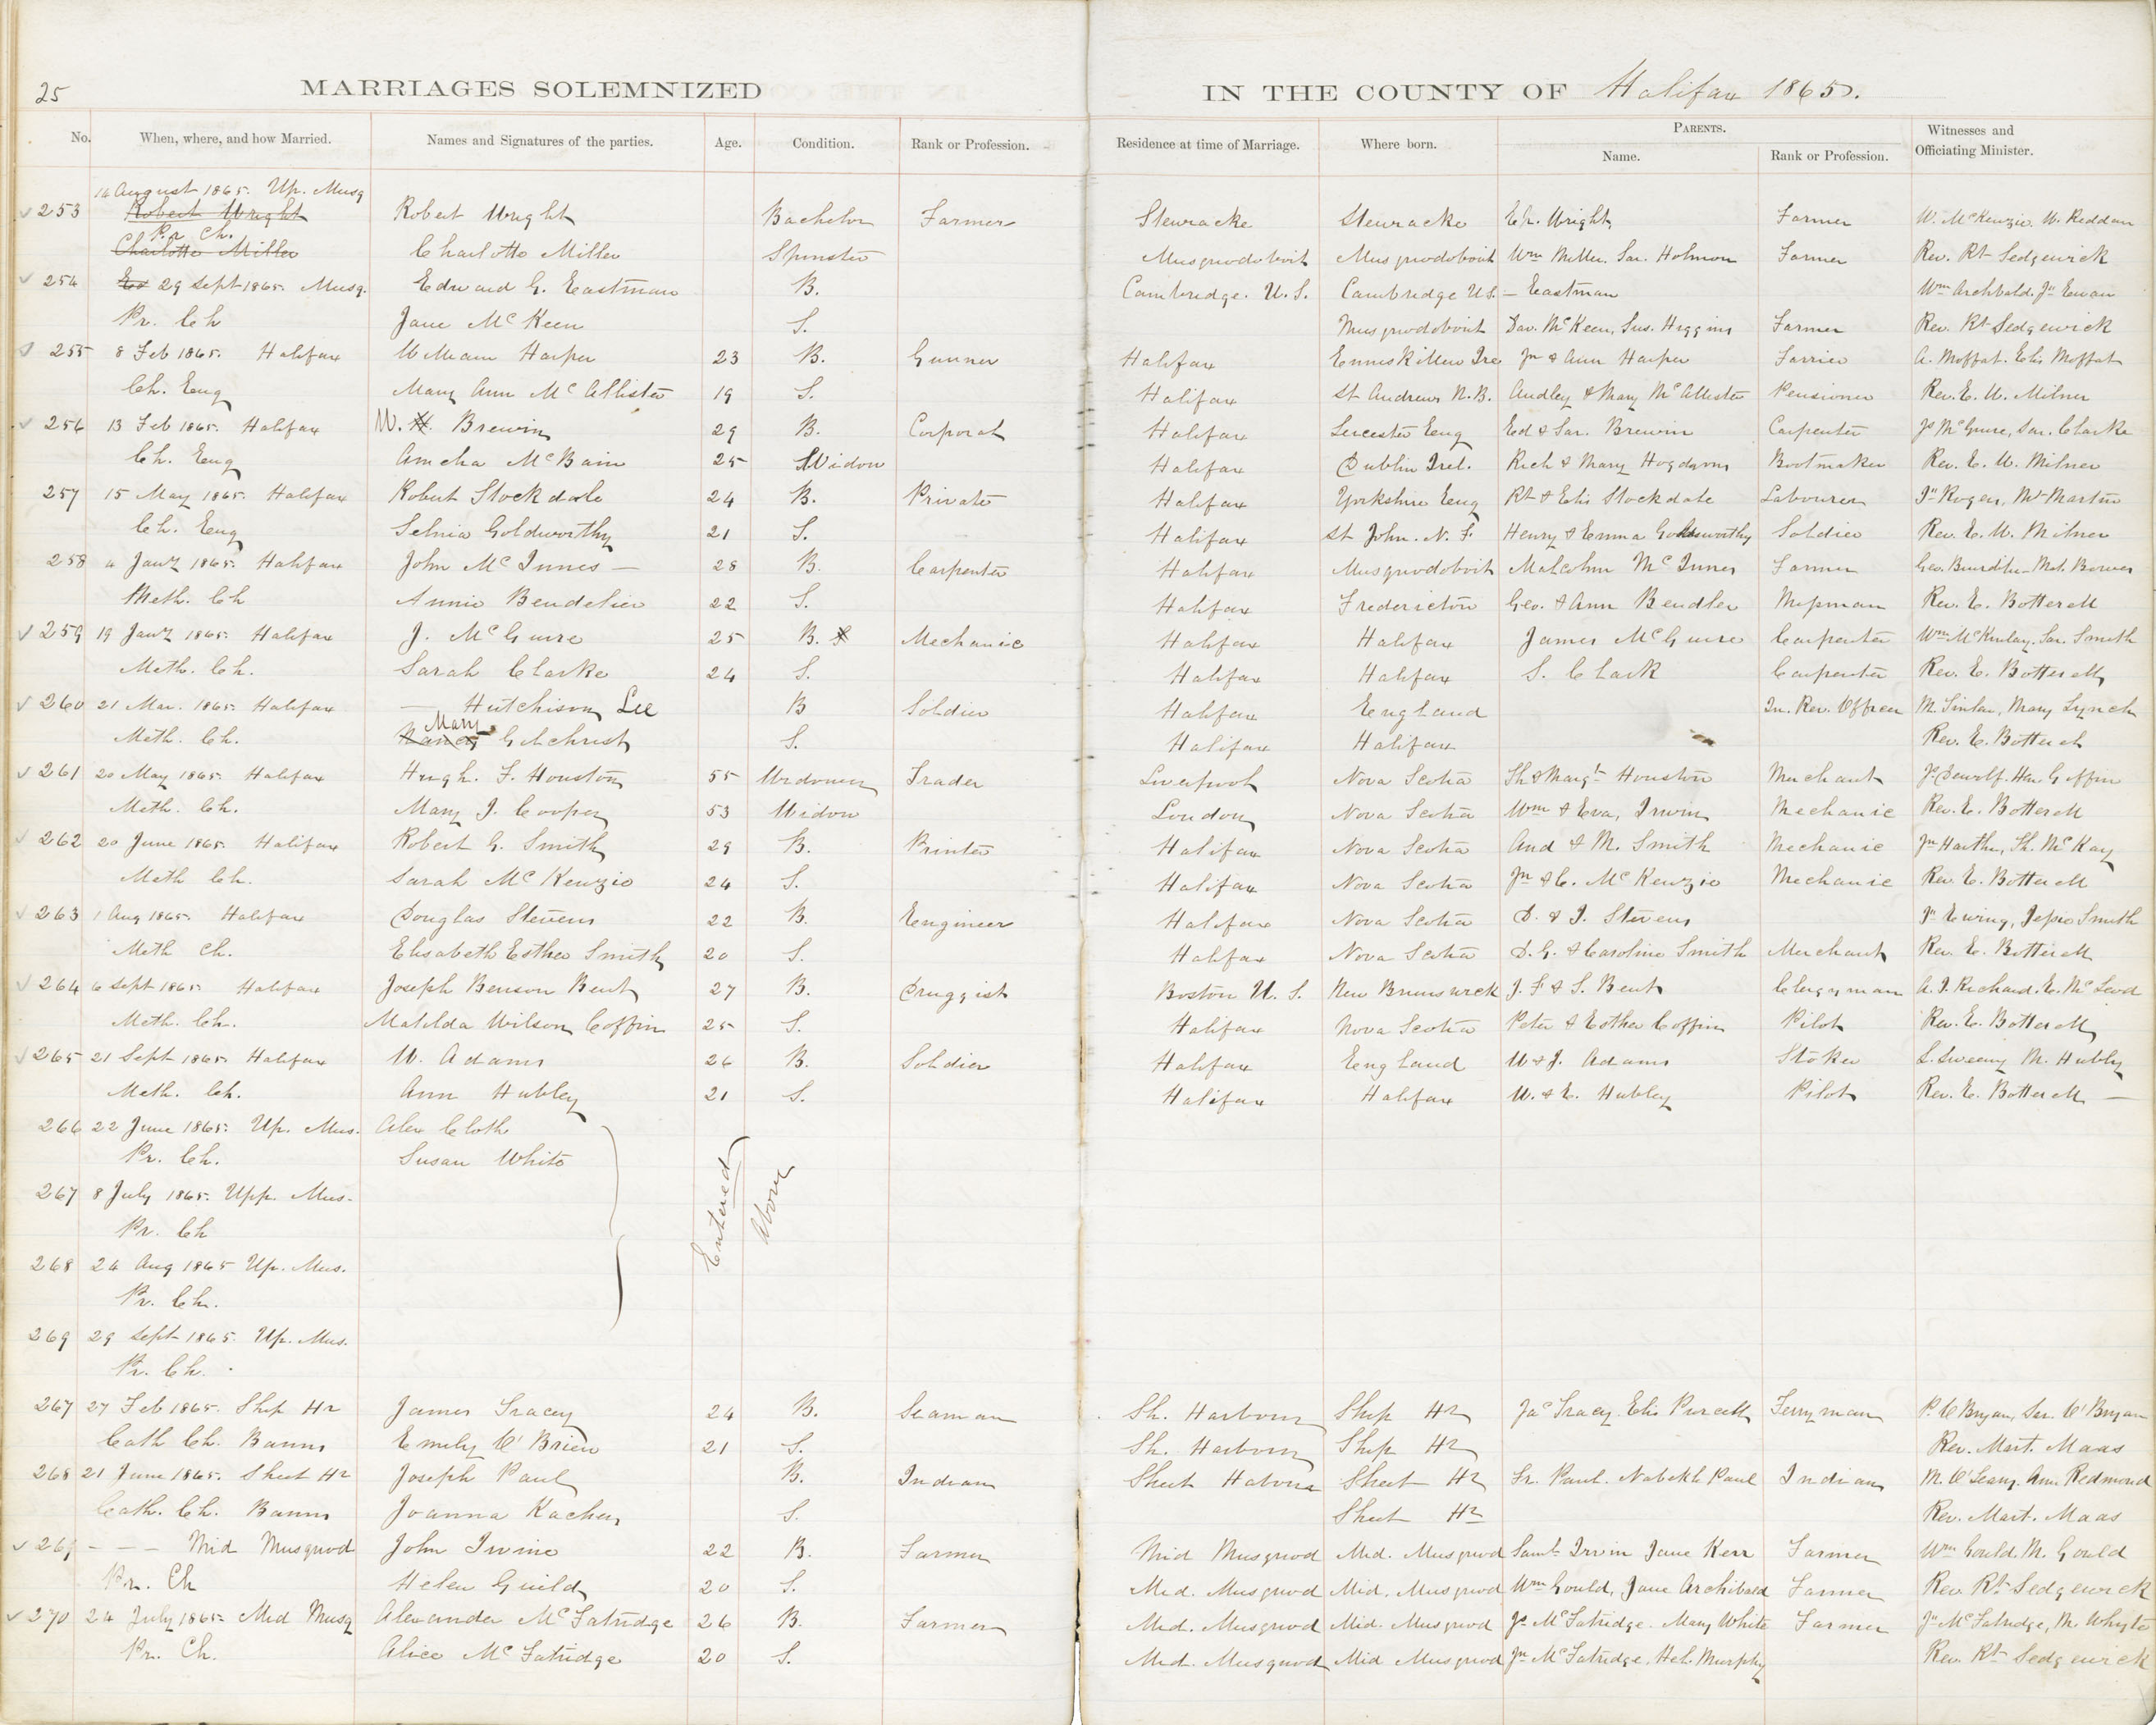 25
MARRIAGES SOLEMNIZED IN THE COUNTY OF Halifax 1865.
No. When, where, and how Married. Names and Signatures of the parties. Age. Condition. Rank or Profession. Residence at time of Marriage. Where born. PARENTS. Name. Rank or Profession. Witnesses and Officiating Minister.
14 August 1865. Up. Musq
253 Robert Wright Robert Wright Bachelor Farmer Stewiacke Stewiacke Wright Farmer W. McKenzie. W. Reddan
Pr Ch.
Charlotte Miller Charlotte Miller Spinster Musquodoboit Musquodoboit Wm Miller. Sar. Holman Farmer Rev. Rt Sedgewick
254 29 Sept 1865. Musq. Edward G. Eastman B. Cambridge. U.S. Cambridge U.S. — Eastman Wm Archibald. Jn Ewan
Pr. Ch Jane McKeen S. Musquodoboit Dav. McKeen, Sus. Higgins Farmer Rev. Rt Sedgewick
255 8 Feb 1865. Halifax William Harper 23 B. Gunner Halifax Enniskillen Ire Jn & Ann Harper Farrier A. Moffat. Elis Moffat
Ch. Eng Mary Ann McAllister 19 S. Halifax St Andrews N.B. Audley & Mary McAllister Pensioner Rev. E. W. Milner
256 13 Feb 1865. Halifax W. H. Brewin 29 B. Corporal Halifax Leicester Eng Ed & Sar. Brewin Carpenter Js McGuire, Sar. Clarke
Ch. Eng Amelia McBain 25 Widow Halifax Dublin Irel. Rich & Mary Hogdsons Bootmaker Rev. E. W. Milner
257 15 May 1865. Halifax Robert Stockdale 24 B. Private Halifax Yorkshire Eng Rt & Elis Stockdale Labourer Jn Rogers, Mr Martin
Ch. Eng Selnia Goldworthy 21 S. Halifax St John. N. F. Henry & Emma Goldsworthy Soldier Rev. E. W. Milner
258 4 Jany 1865. Halifax John McInnes — 28 B. Carpenter Halifax Musquodoboit Malcolm McInnes Farmer Geo. Bowers
Meth. Ch Annie Bendelier 22 S. Halifax Fredericton Geo. & Ann Bendler Messman Rev. E. Botterell
259 19 Jany 1865. Halifax J. McGuire 25 B. S Mechanic Halifax Halifax James McGuire Carpenter Wm McKinlay. Sar. Smith
Meth. Ch. Sarah Clarke 24 S. Halifax Halifax S. Clark Carpenter Rev. E. Botterell
260 21 Mar. 1865. Halifax — Hutchison Lee B Soldier Halifax England In. Rev. Officer M. Sinlan, Mary Lynch
Meth. Ch. Nancy Mary Gilchrist S. Halifax Halifax Rev. E. Botterell
261 20 May 1865. Halifax Hugh. F. Houston 55 Widower Trader Liverpool Nova Scotia Th & Margt Houston Merchant Js Dewolf. Han Giffin
Meth. Ch. Mary J. Cooper 53 Widow London Nova Scotia Wm & Eva, Irwin Mechanic Rev. E. Botterell
262 20 June 1865. Halifax Robert G. Smith 29 B. Printer Halifax Nova Scotia And & M. Smith Mechanic Th. McKay
Meth Ch. Sarah McKenzie 24 S. Halifax Nova Scotia Jn & C. McKenzie Mechanic Rev. E. Botterell
263 1 Aug 1865. Halifax Douglas Stevens 22 B. Engineer Halifax Nova Scotia D. & J. Stevens Jn Ewing, Jessie Smith
Meth Ch. Elisabeth Esther Smith 20 S. Halifax Nova Scotia D. G. & Caroline Smith Merchant Rev. E. Botterell
264 6 Sept 1865 Halifax Joseph Benson Bent 27 B. Druggist Boston U. S. New Brunswick J. F & S. Bent Clergyman A. J. Richard. E. McLeod
Meth. Ch. Matilda Wilson Coffin 25 S. Halifax Nova Scotia Peter & Esther Coffin Pilot Rev. E. Botterell
265 21 Sept 1865 Halifax W. Adams 26 B. Soldier Halifax England W & J. Adams Stoker S. Sweeny M. Hubley
Meth. Ch. Ann Hubley 21 S. Halifax Halifax W. & E. Hubley Pilot Rev. E. Botterell —
266 22 June 1865. Up. Mus. Alex Cloth
Pr. Ch. Susan White
Entered above
267 8 July 1865. Upp. Mus.
Pr. Ch
268 24 Aug 1865 Up. Mus.
Pr. Ch.
269 29 Sept 1865. Up. Mus.
Pr. Ch.
267 27 Feb 1865. Ship Hr James Tracey 24 B. Seaman Sh. Harbour Ship Hr Jas Tracey. Elis Purcell Ferryman P. O'Bryan, Sar. O'Bryan
Cath Ch. Banns Emily O'Brien 21 S. Sh. Harbour Ship Hr Rev. Mart. Maas
268 21 June 1865. Sheet Hr Joseph Paul B. Indian Sheet Habour Sheet Hr Fr. Paul. Paul Indian M. O'Leary. Ann Redmond
Cath. Ch. Banns Joanna Kachen S. Sheet Hr Rev. Mart. Maas
269 — — — Mid Musquod John Irvine 22 B. Farmer Mid Musquod Mid. Musquod Saml Irvin Jane Kerr Farmer Wm Gould, M. Gould
Pr. Ch Helen Guild 20 S. Mid. Musquod Mid. Musquod Wm Gould, Jane Archibald Farmer Rev Rt Sedgewick
270 24 July 1865 Mid Musq Alexander McFatridge 26 B. Farmer Mid. Musquod Mid. Musquod Js McFatridge. Mary White Farmer Jn McFatridge, M. Whyte
Pr. Ch. Alice McFatridge 20 S. Mid. Musquod Mid Musquod Jn McFatridge, Hel. Murphy Rev. Rt Sedgewick